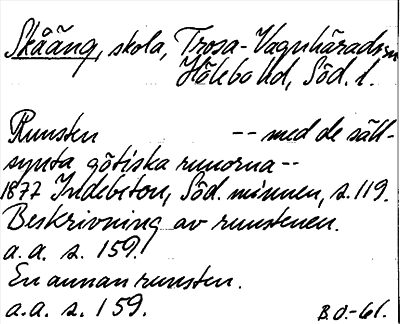 Skåäng, skola, Trosa-Vagnhärads sn
Hölebo hd, Söd. l.
Runsten -- med de säll-
synta götiska runorna --
1877 Indebetou, Söd. minnen, s. 119.
Beskrivning av runstenen.
a.a. s. 159.
En annan runsten.
a.a. s. 159.
B.O.-61.